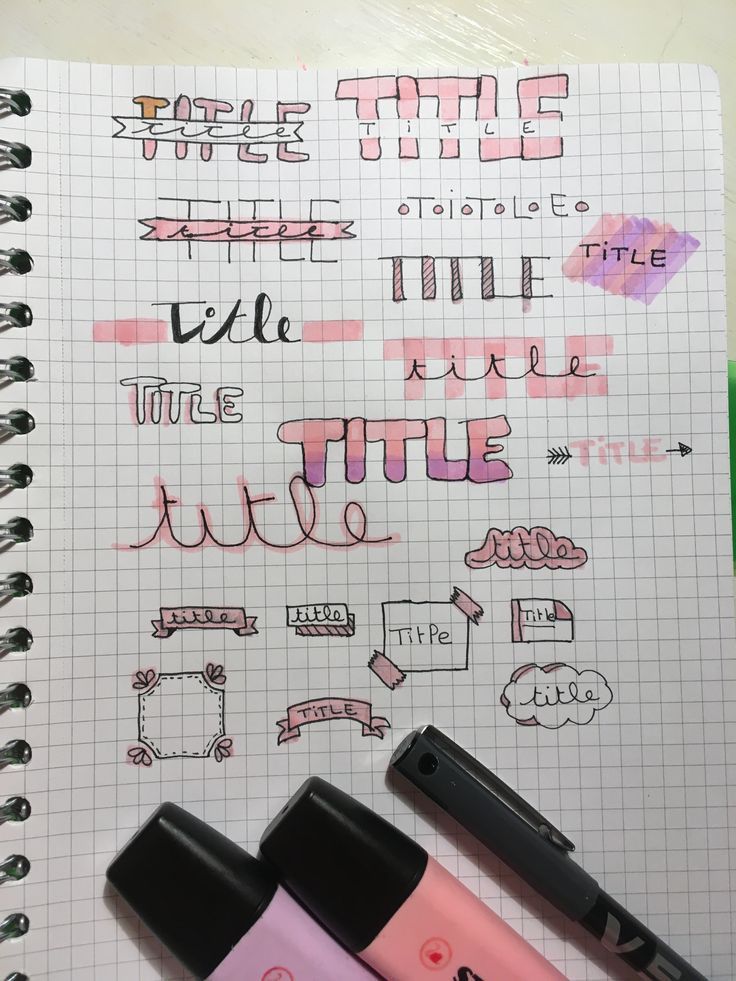 TITLE
title
TITLE
TiTLE
TITLE
title
TiTLE
TiTLE
TITLE
Title
TITLE
title
TiTLE
TITLE
TiTLE
title
title
title
title
TitPe
Title
TiTLE
title